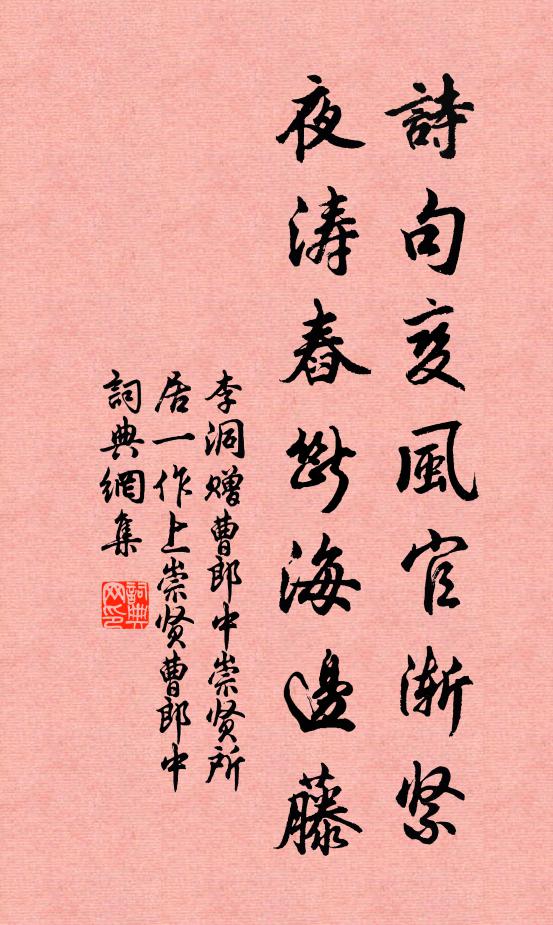 詩句變風官漸緊
夜涛舂斷海邊藤
李洞赠曹郎中崇贤所
居一作上崇贤曹郎中
詞典網集
詞典網印